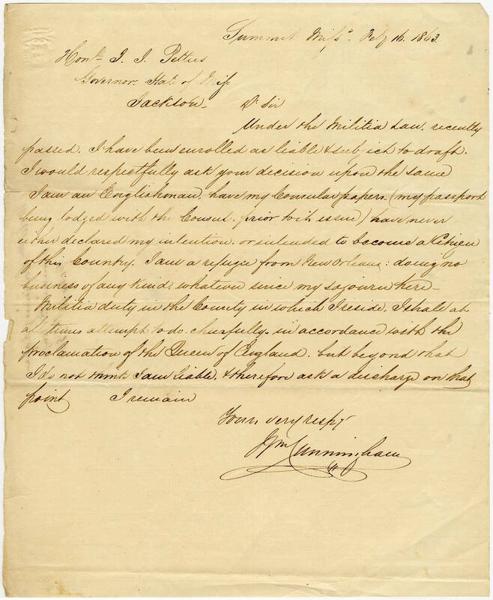 Summit Missi. Feby 16. 1863.
Honble J. J. Pettus
Governor. State of Miss
Jackson. Dr Sir
Under the Militia Law, recently
passed. I have been enrolled as liable & subject to draft.
I would respectfully ask your decision upon the same
I am an Englishman, have my Consular papers. (my passport
being lodged with the Consul. prior to its issue) have never
either declared my intention, or intended to become a Citizen
of this Country. I am a refugee from New Orleans: doing no
business of any kind, whatever since my sojourn here—
Militia duty in the County in which I reside, I shall at
all times attempt to do. cheerfully. in accordance with the
proclamation of the Queen of England. but beyond that
I do not think I am liable, & therefore ask a discharge on that
point I remain
Yours very respy
Cunningham